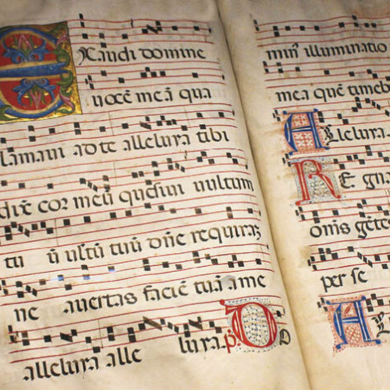 Exaudi domine
uocē meā qua
lamaui ad te alleluya tibi
dixit cor meū quesiui uultum
tu ū uultū tuū dn̄e requirā
ne auertas faciē tuā a me
alleluya alle luya. p̄s D
min⁹ illuminatio
mea quē timeb
Alleluya
Regna
om̄s gētes
per se
Al